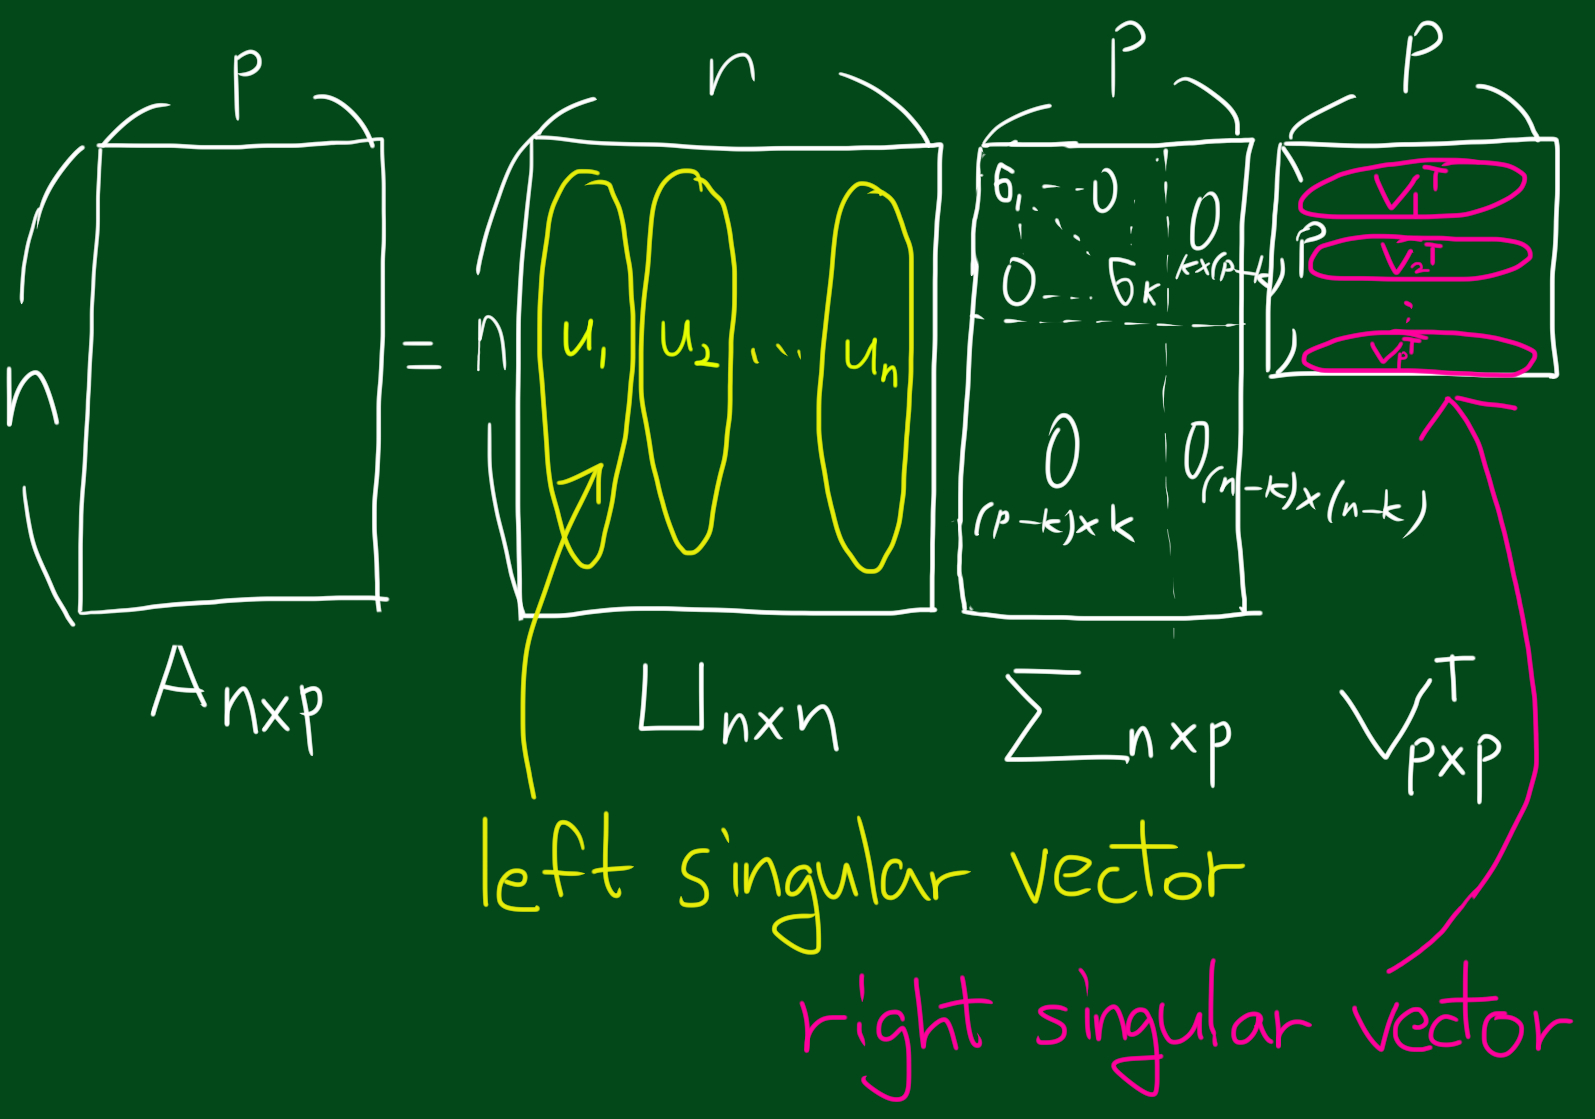 p n p p
n = n p
u₁ u₂ ... uₙ
σ₁ -- 0 0 k×(p-k)
0 ... σₖ
0 (p-k)×k 0 (n-k)×(n-k)
V₁ᵀ
V₂ᵀ
⋮
Vₚᵀ
A n×p U n×n Σ n×p Vᵀ p×p
left singular vector
right singular vector